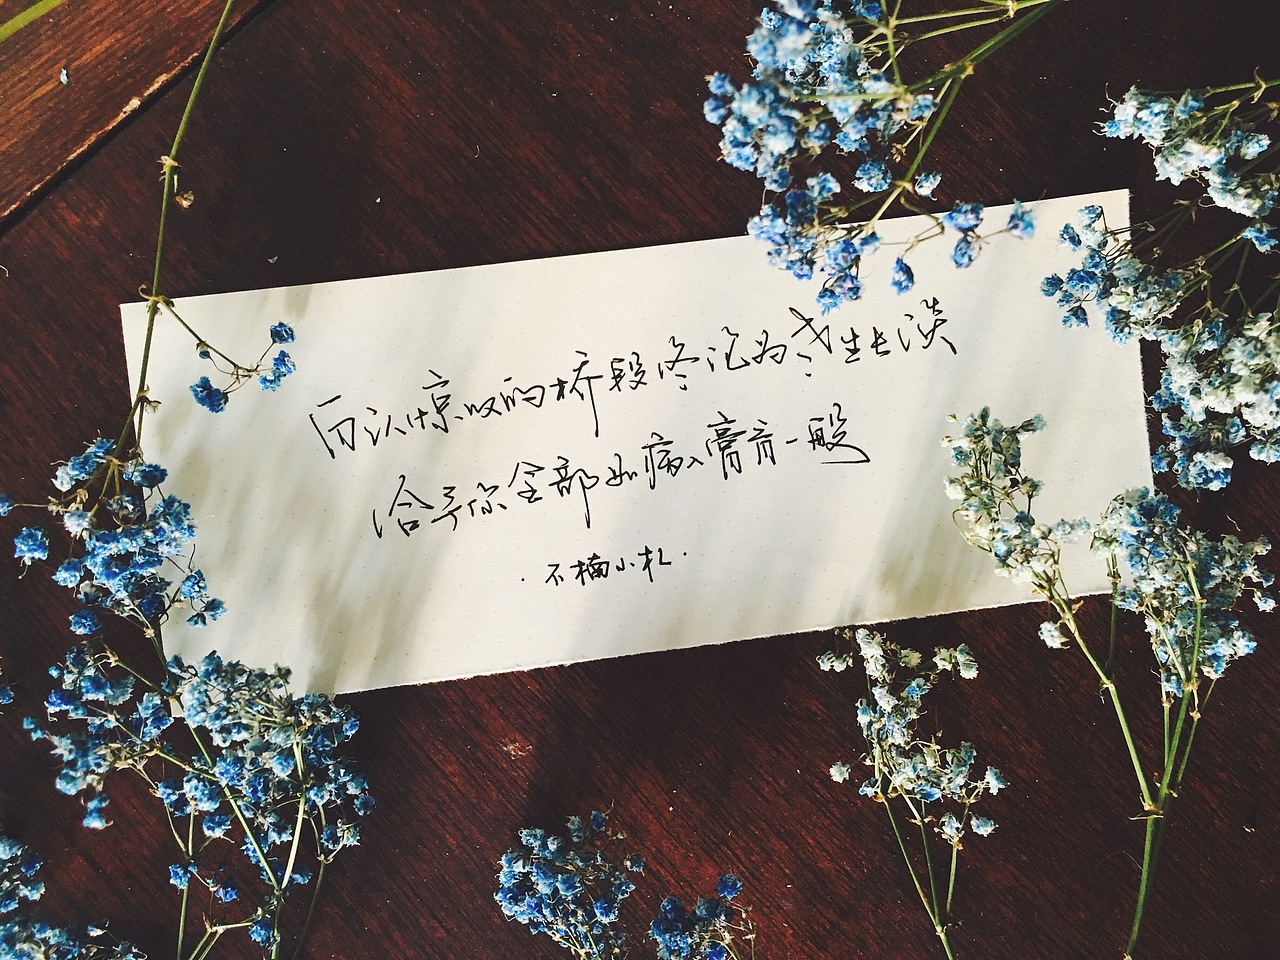 历认惊叹的桥段终沦为冬生长淡
给予你全部如病入膏肓一般
·不楠小札·